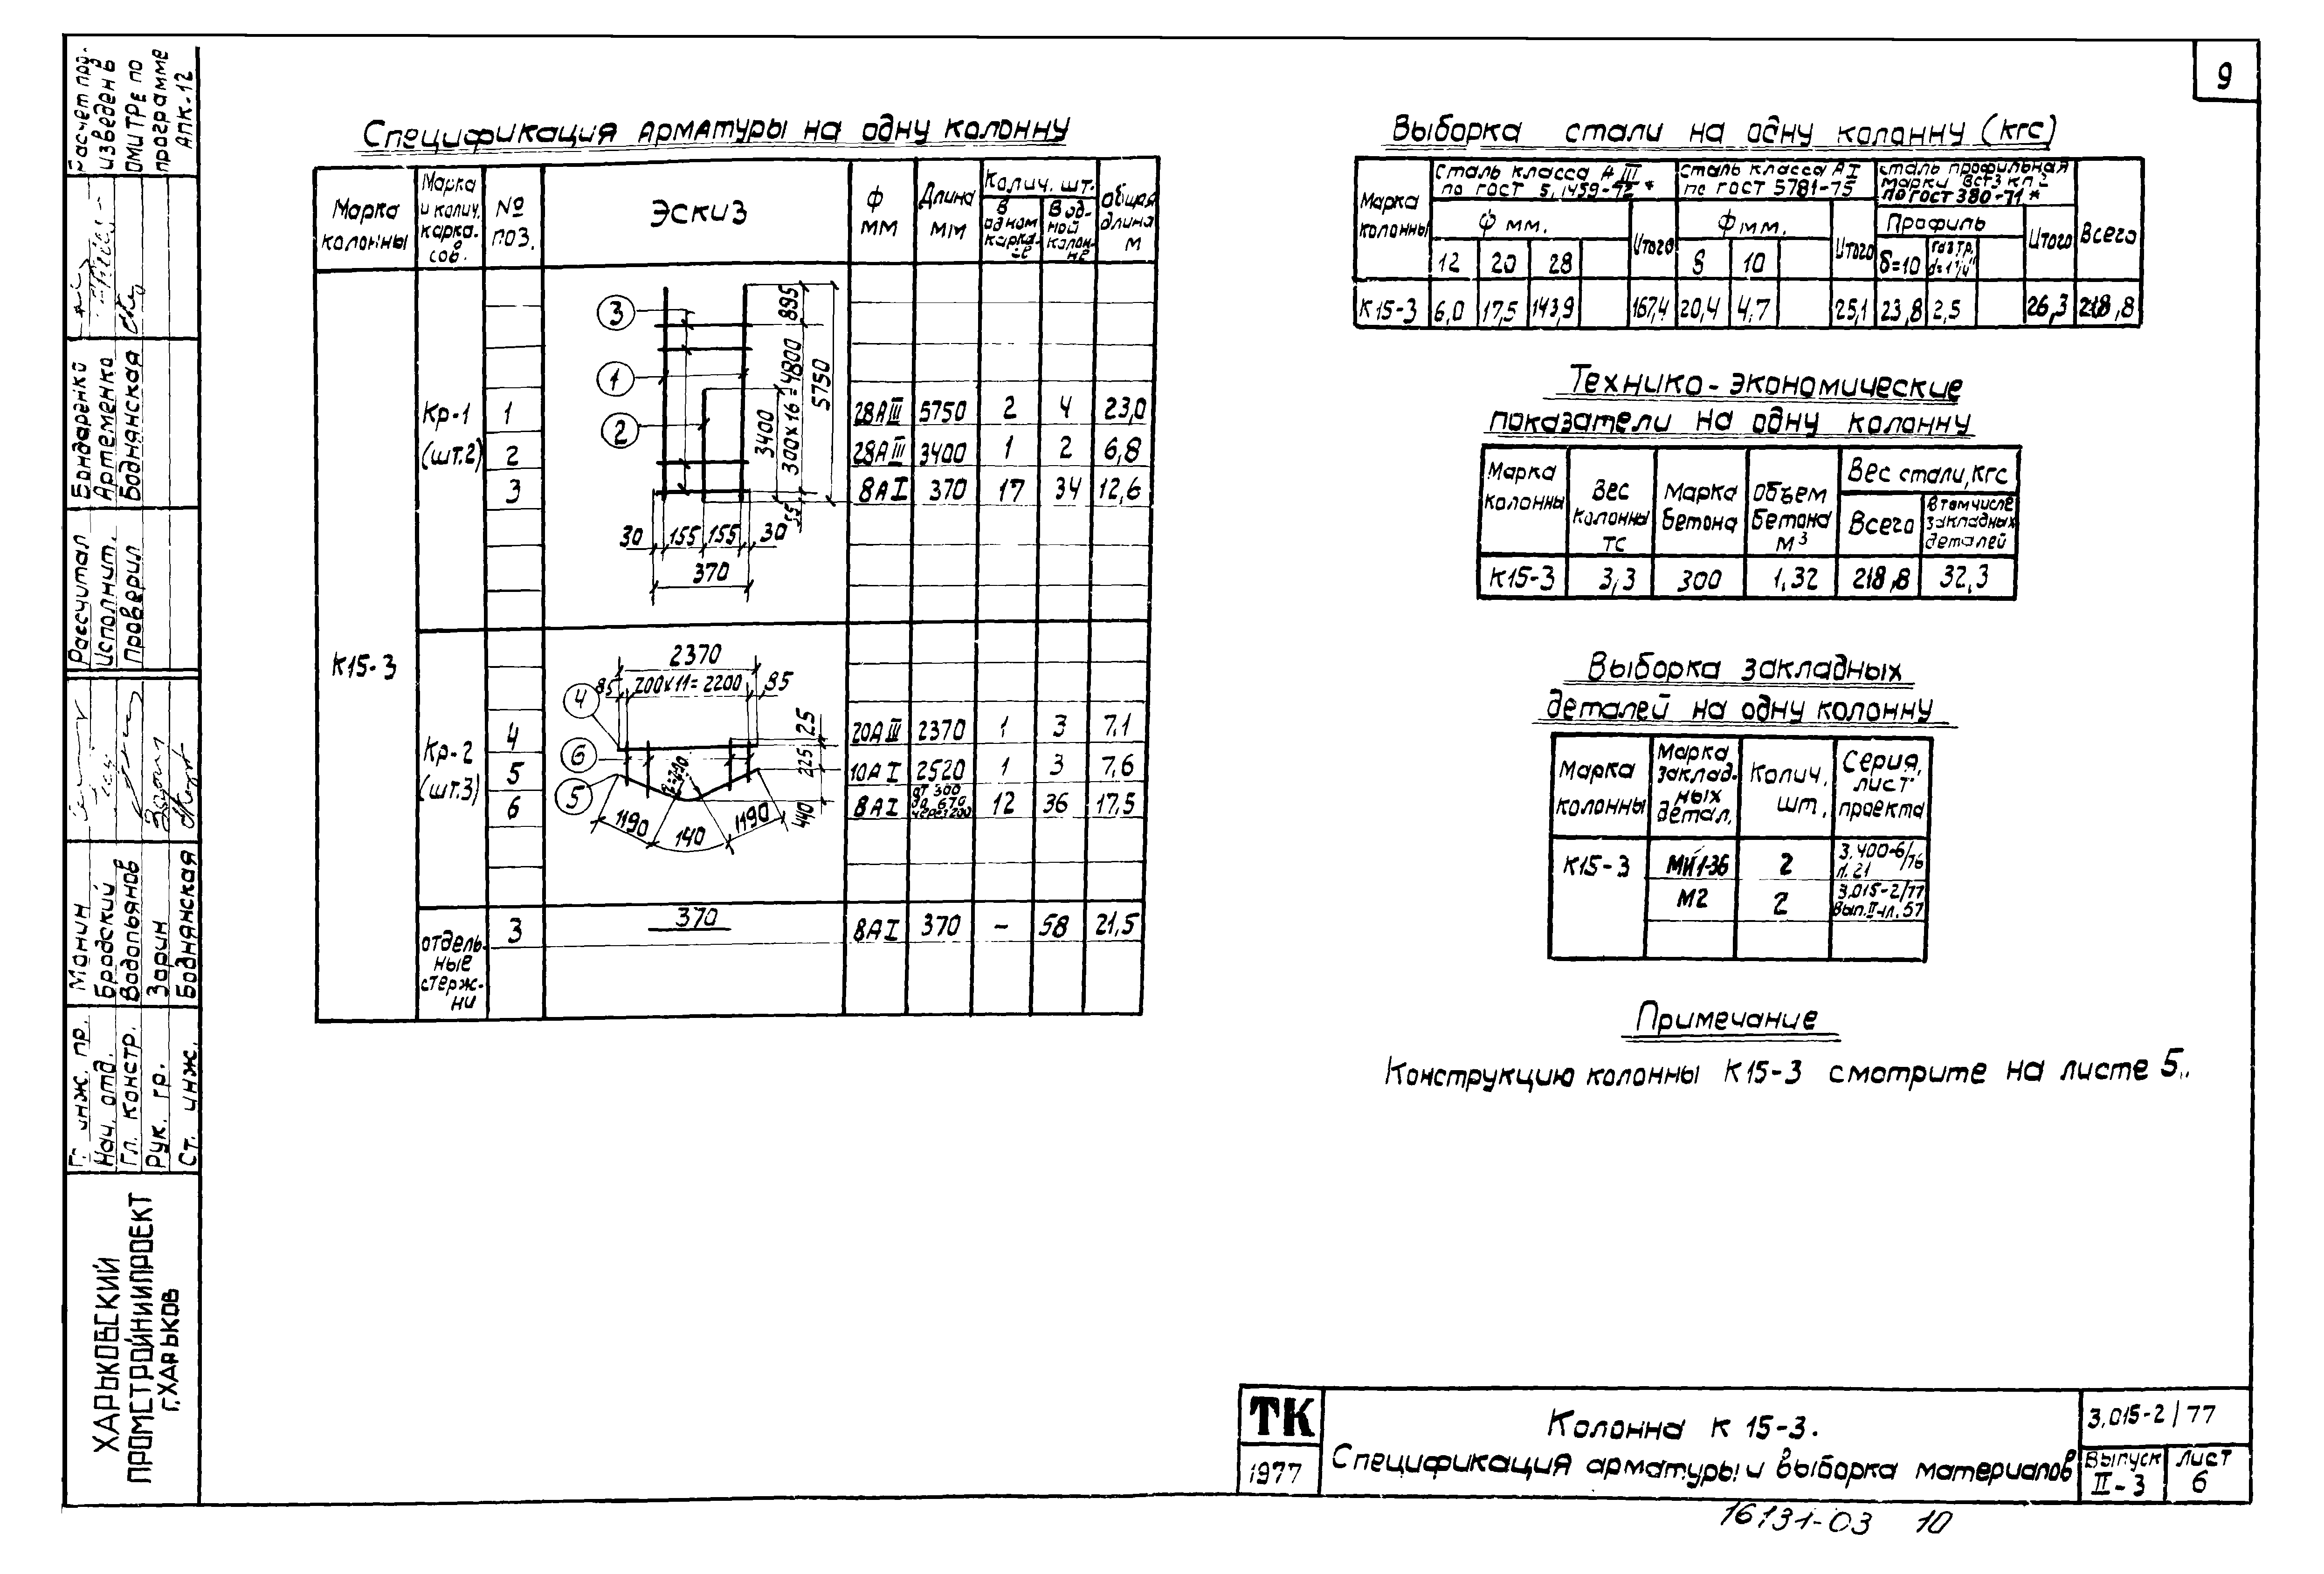 9
Спецификация арматуры на одну колонну
Марка колонны
Марка и колич. каркасов.
№ поз.
Эскиз
Ф мм
Длина мм
Колич. шт.
В одном каркасе
В одной колонне
Общая длина м
К15-3
Кр-1 (шт.2)
1 28АIII 5750 2 4 23,0
2 28АIII 3400 1 2 6,8
3 8АI 370 17 34 12,6
3
1
2
895
300х16=4800
5750
3400
55
30 155 155 30
370
Кр-2 (шт.3)
4 20АIII 2370 1 3 7,1
5 10АI 2520 1 3 7,6
6 8АI от 300 до 670 через 200 12 36 17,5
2370
85 200х11=2200 85
4
6
5
25
225
440
1190 140 1190
отдельные стержни
3 370 8АI 370 – 58 21,5
Выборка стали на одну колонну (кгс)
Марка колонны
Сталь класса АIII по ГОСТ 5.1459-72*
Сталь класса АI по ГОСТ 5781-75
Сталь профильная марки Вст3 кп2 по ГОСТ 380-71*
Всего
Ф мм.
Итого
Ф мм.
Итого
Профиль
Итого
12 20 28
8 10
δ=10 газ.тр. d=1¼"
К15-3 6,0 17,5 143,9 167,4 20,4 4,7 25,1 23,8 2,5 26,3 218,8
Технико-экономические
показатели на одну колонну
Марка колонны
Вес колонны тс
Марка бетона
Объем бетона м³
Вес стали, кгс
Всего
В том числе закладных деталей
К15-3 3,3 300 1,32 218,8 32,3
Выборка закладных
деталей на одну колонну
Марка колонны
Марка закладных детал.
Колич. шт.
Серия, лист проекта
К15-3 МИ1-36 2 3.400-6/76 л.21
М2 2 3.015-2/77 Вып.II-1 л.57
Примечание
Конструкцию колонны К15-3 смотрите на листе 5.
Расчет произведен ЦМИТРЕ по программе АПК-12
Рассчитал Бондаренко
Исполнит. Артеменко
Проверил Боднянская
Гл. инж. пр. Монин
Нач. отд. Бродский
Гл. констр. Водопьянов
Рук. гр. Зорин
Ст. инж. Боднянская
ХАРЬКОВСКИЙ
ПРОМСТРОЙНИИПРОЕКТ
г.ХАРЬКОВ
ТК
1977
Колонна К 15-3.
Спецификация арматуры и выборка материалов
3.015-2/77
Выпуск II-3
Лист 6
16131-03 10